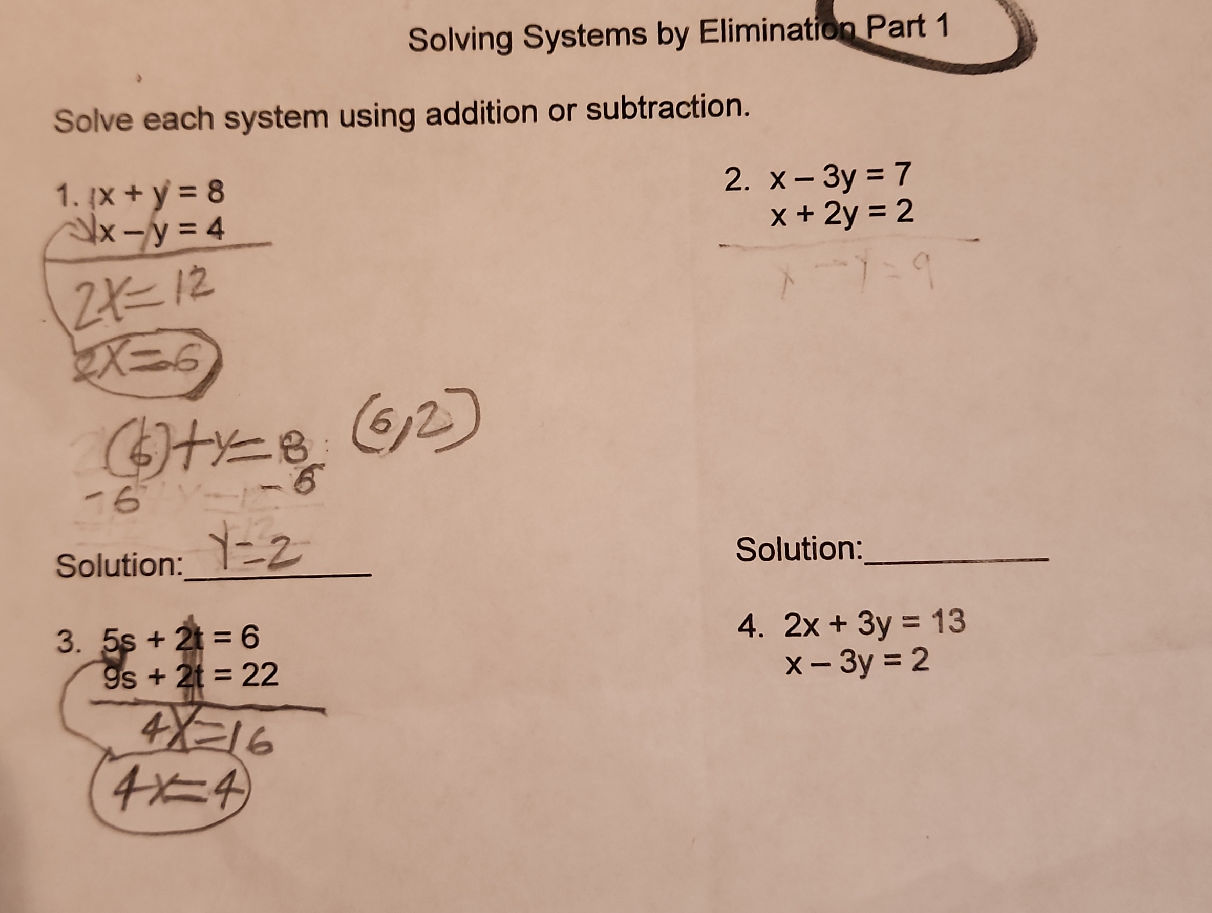 Solving Systems by Elimination Part 1
Solve each system using addition or subtraction.
1. 1x + y = 8
x – y = 4
2x = 12
2x = 6
(6) + y = 8
(6,2)
-6 -6
Solution: y = 2
2. x – 3y = 7
x + 2y = 2
x - y = 9
Solution:
3. 5s + 2t = 6
9s + 2t = 22
4x = 16
4x = 4
4. 2x + 3y = 13
x – 3y = 2